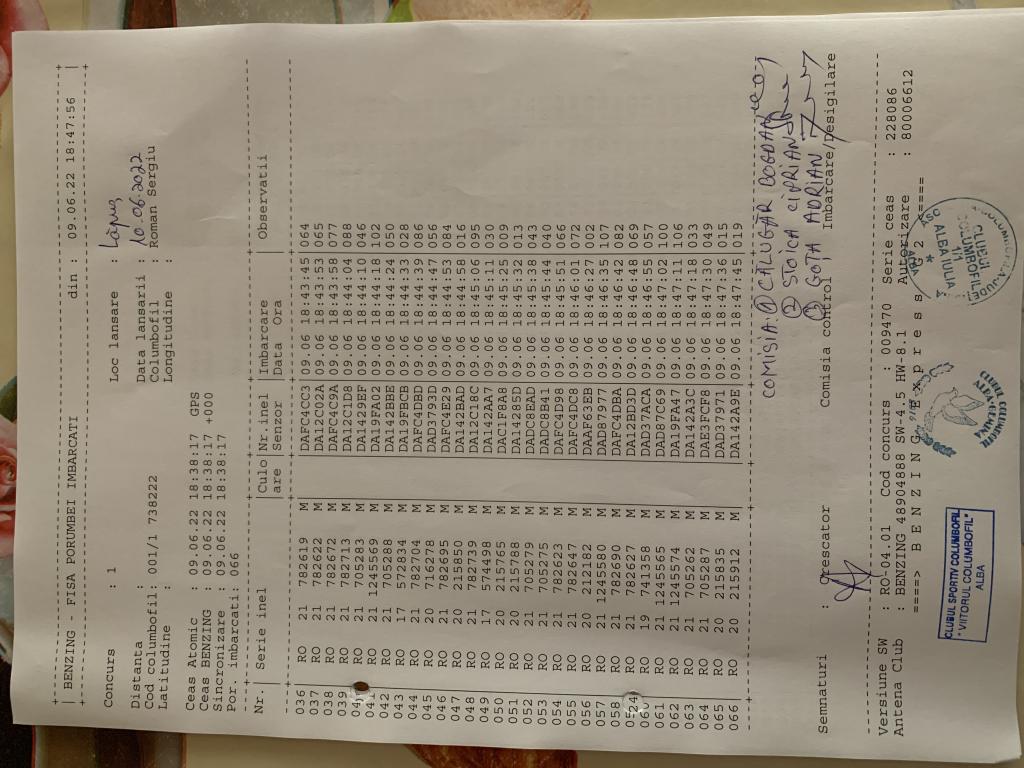 | BENZING - FISA PORUMBEI IMBARCATI din : 09.06.22 18:47:56 |
Concurs : 1 Loc lansare : Lăpuș
Distanta : Data lansarii : 10.06.2022
Cod columbofil: 001/1 738222 Columbofil : Roman Sergiu
Latitudine : Longitudine :
Ceas Atomic : 09.06.22 18:38:17 GPS
Ceas BENZING : 09.06.22 18:38:17 +000
Sincronizare : 09.06.22 18:38:17
Por. imbarcati: 066
Nr. | Serie inel |Culo|Nr.inel |Imbarcare | Observatii
|are |Senzor |Data Ora |
036 RO 21 782619 M DAFC4CC3 09.06 18:43:45 064
037 RO 21 782622 M DA12C02A 09.06 18:43:53 065
038 RO 21 782672 M DAFC4C9A 09.06 18:43:58 077
039 RO 21 782713 M DA12C1D8 09.06 18:44:04 088
04 RO 21 705283 M DA1429EF 09.06 18:44:10 046
041 RO 21 1245569 M DA19FA02 09.06 18:44:18 102
042 RO 21 705288 M DA142BBE 09.06 18:44:24 050
043 RO 17 572834 M DA19FBCB 09.06 18:44:33 028
044 RO 21 782704 M DAFC4DBD 09.06 18:44:39 086
045 RO 20 716278 M DAD3793D 09.06 18:44:47 056
046 RO 21 782695 M DAFC4E29 09.06 18:44:53 084
047 RO 20 215850 M DA142BAD 09.06 18:44:58 016
048 RO 21 782739 M DA12C18C 09.06 18:45:06 095
049 RO 17 574498 M DA142AA7 09.06 18:45:11 030
050 RO 20 215765 M DAC1F8A8 09.06 18:45:25 009
051 RO 20 215788 M DA14285D 09.06 18:45:32 013
052 RO 21 705279 M DADC8EAD 09.06 18:45:38 043
053 RO 21 705275 M DADC8B41 09.06 18:45:44 040
054 RO 21 782623 M DAFC4D98 09.06 18:45:51 066
055 RO 21 782647 M DAFC4DC8 09.06 18:46:01 072
056 RO 20 212182 M DAAF63EB 09.06 18:46:27 002
057 RO 21 1245580 M DAD87977 09.06 18:46:35 107
058 RO 21 782690 M DAFC4DBA 09.06 18:46:42 082
RO 21 782627 M DA12BD3D 09.06 18:46:48 069
060 RO 19 741358 M DAD37ACA 09.06 18:46:55 057
061 RO 21 1245565 M DAD87C69 09.06 18:47:02 100
062 RO 21 1245574 M DA19FA47 09.06 18:47:11 106
063 RO 21 705262 M DA142A3C 09.06 18:47:18 033
064 RO 21 705287 M DAE3FCF8 09.06 18:47:30 049
065 RO 20 215835 M DAD37971 09.06 18:47:36 015
066 RO 20 215912 M DA142A9E 09.06 18:47:45 019
COMISIA: ① CALUGĂR BOGDAN
② STOICA CIPRIAN
③ GOTA ADRIAN
Semnaturi : Crescator Comisia control Imbarcare/Desigilare
Versiune SW : RO-04.01 Cod concurs : 009470 Serie ceas : 228086
Antena Club : BENZING 48904888 SW-4.5 HW-8.1 Autorizare : 80006612
====> B E N Z I N G E x p r e s s G 2 <====
CLUBUL SPORTIV COLUMBOFIL
"VIITORUL COLUMBOFIL"
ALBA